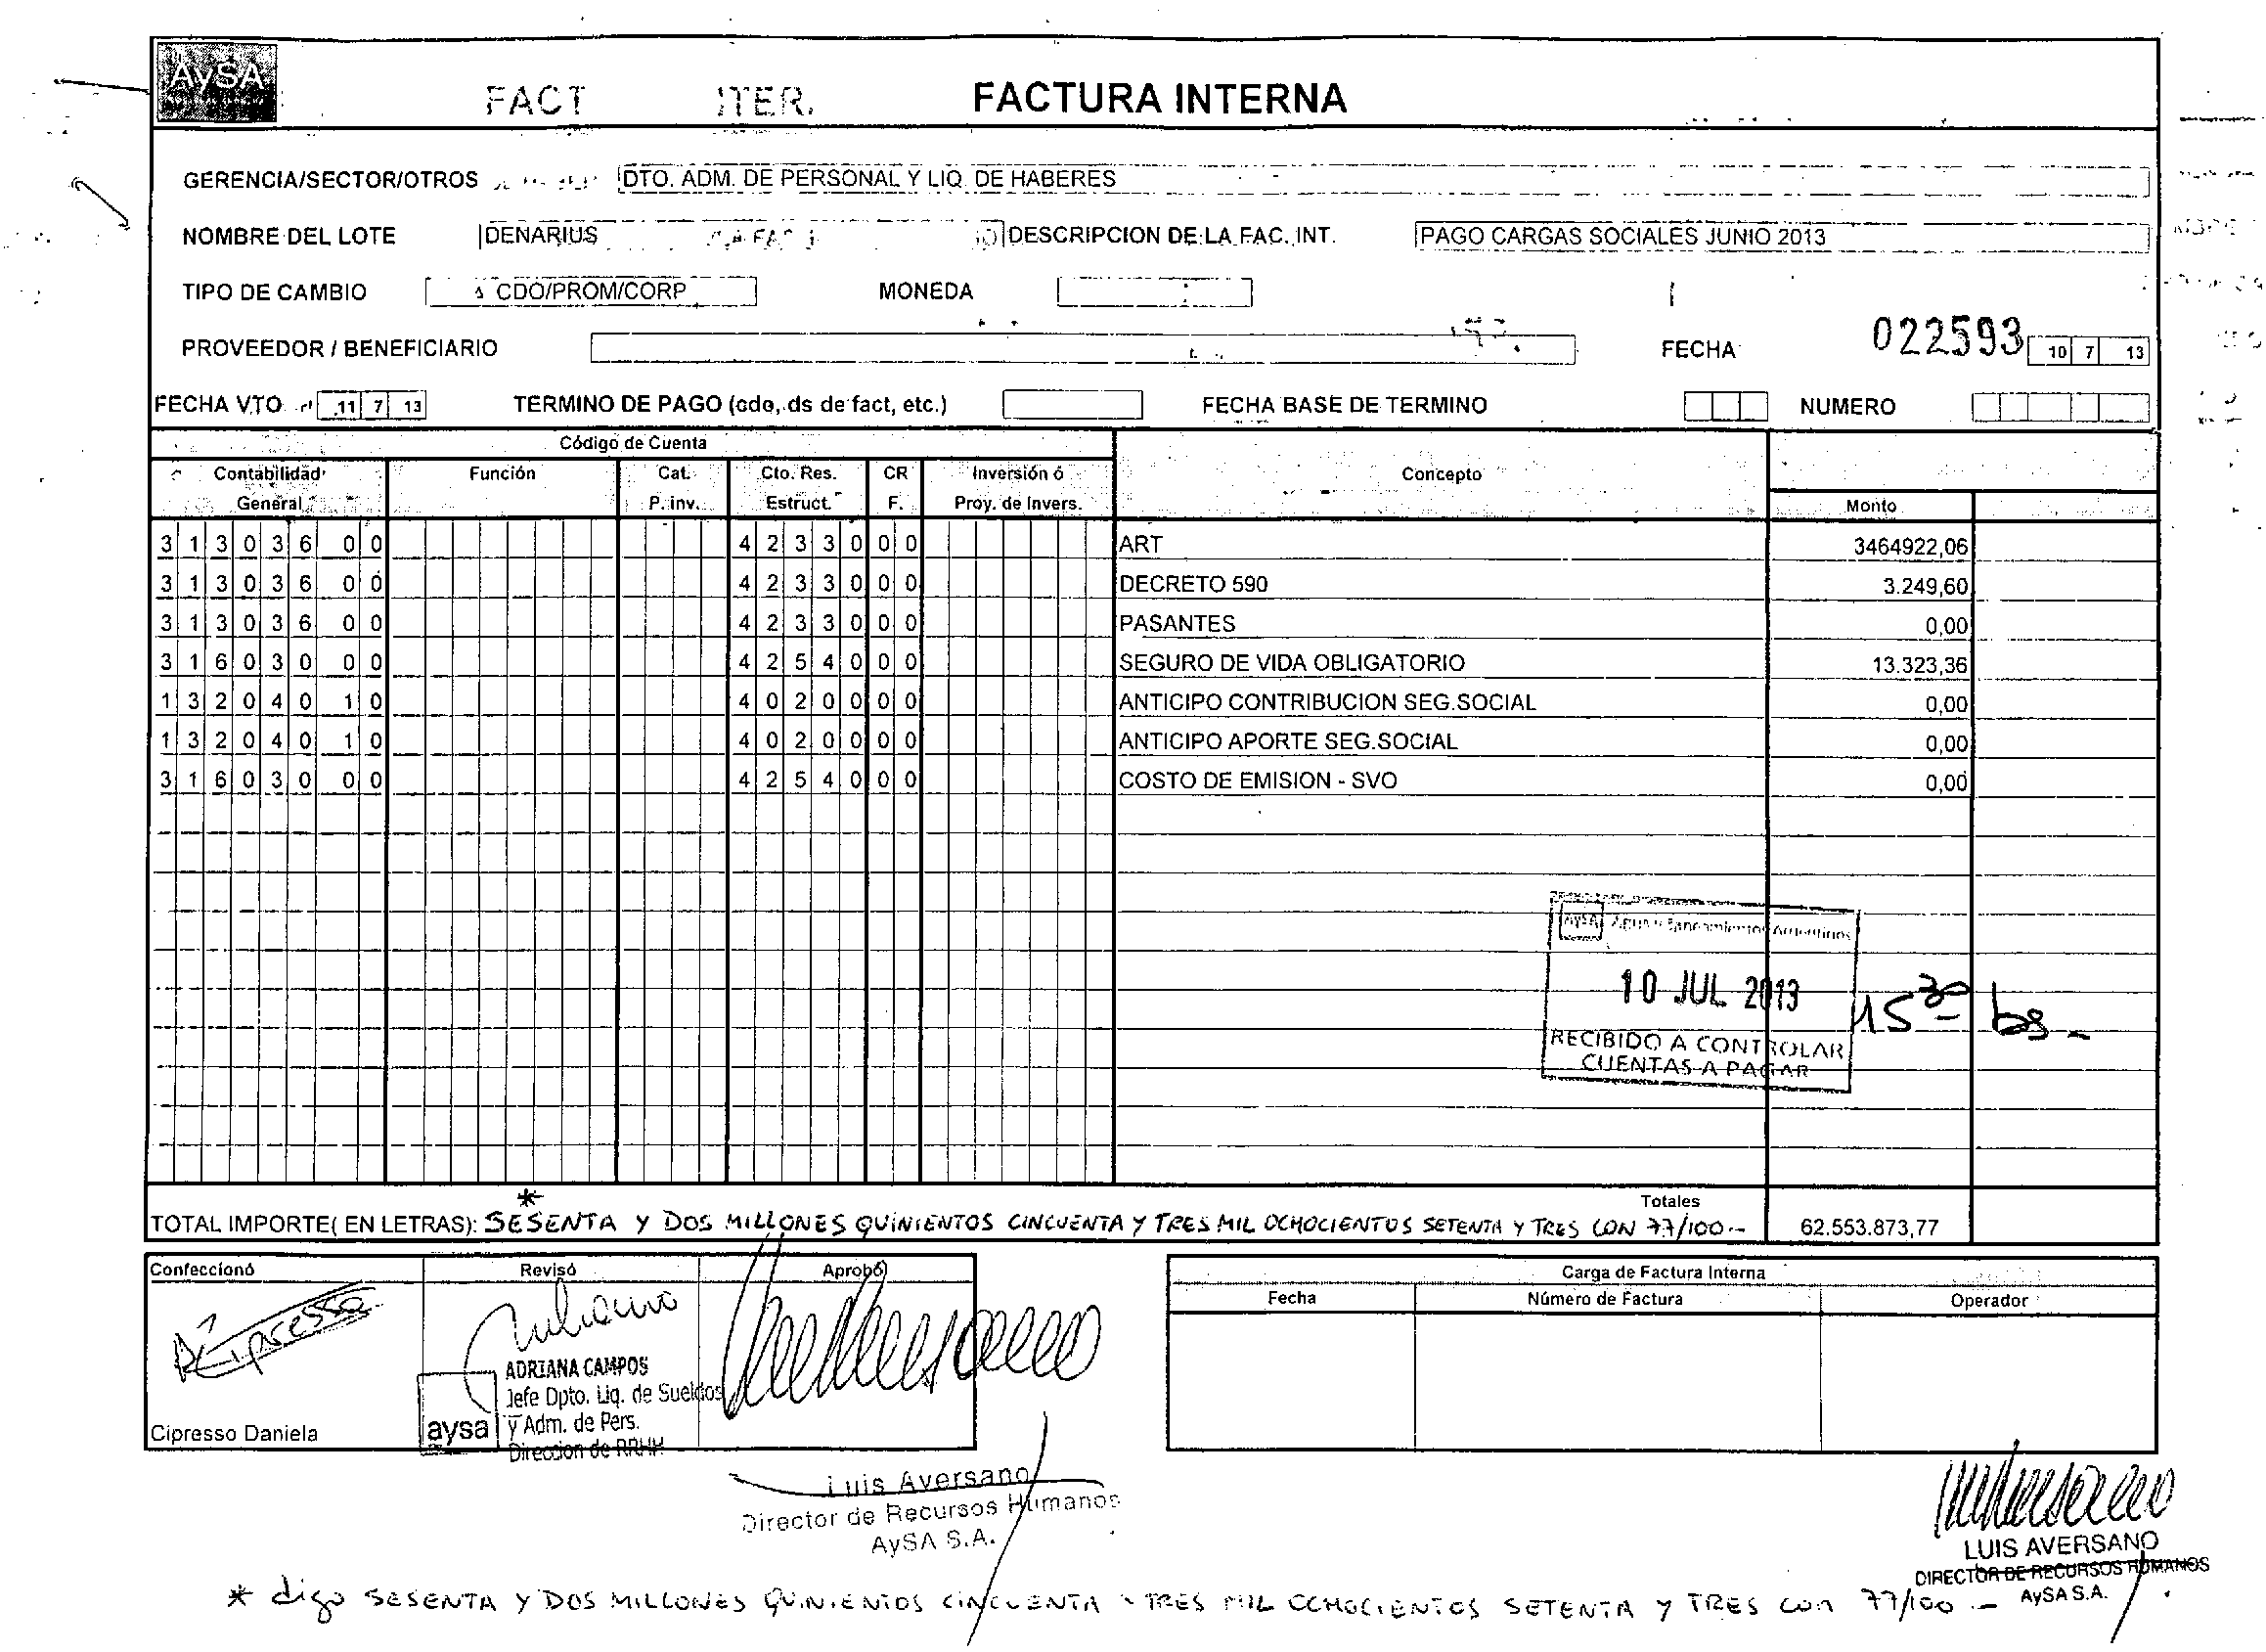 AySA
FACTURA INTERNA
GERENCIA/SECTOR/OTROS DTO. ADM. DE PERSONAL Y LIQ. DE HABERES
NOMBRE DEL LOTE DENARIUS DESCRIPCION DE LA FAC. INT. PAGO CARGAS SOCIALES JUNIO 2013
TIPO DE CAMBIO CDO/PROM/CORP MONEDA
PROVEEDOR / BENEFICIARIO FECHA 022593 10 7 13
FECHA VTO 11 7 13 TERMINO DE PAGO (cdo, ds de fact, etc.) FECHA BASE DE TERMINO NUMERO
Código de Cuenta
Contabilidad General Función Cat. P. inv. Cto. Res. Estruct. CR F. Inversión ó Proy. de Invers. Concepto Monto
3 1 3 0 3 6 0 0 4 2 3 3 0 0 0 ART 3464922,06
3 1 3 0 3 6 0 0 4 2 3 3 0 0 0 DECRETO 590 3.249,60
3 1 3 0 3 6 0 0 4 2 3 3 0 0 0 PASANTES 0,00
3 1 6 0 3 0 0 0 4 2 5 4 0 0 0 SEGURO DE VIDA OBLIGATORIO 13.323,36
1 3 2 0 4 0 1 0 4 0 2 0 0 0 0 ANTICIPO CONTRIBUCION SEG.SOCIAL 0,00
1 3 2 0 4 0 1 0 4 0 2 0 0 0 0 ANTICIPO APORTE SEG.SOCIAL 0,00
3 1 6 0 3 0 0 0 4 2 5 4 0 0 0 COSTO DE EMISION - SVO 0,00
AySA Agua y Saneamientos Argentinos
10 JUL 2013
15 30 hs.-
RECIBIDO A CONTROLAR
CUENTAS A PAGAR
Totales
*
TOTAL IMPORTE( EN LETRAS): SESENTA Y DOS MILLONES QUINIENTOS CINCUENTA Y TRES MIL OCHOCIENTOS SETENTA Y TRES CON 77/100.- 62.553.873,77
Confeccionó Revisó Aprobó Carga de Factura Interna
Fecha Número de Factura Operador
ADRIANA CAMPOS
Jefe Dpto. Liq. de Sueldos
y Adm. de Pers.
Direccion de RRHH
aysa
Cipresso Daniela
Luis Aversano
Director de Recursos Humanos
AySA S.A.
LUIS AVERSANO
DIRECTOR DE RECURSOS HUMANOS
AySA S.A.
* digo SESENTA Y DOS MILLONES QUINIENTOS CINCUENTA Y TRES MIL OCHOCIENTOS SETENTA Y TRES CON 77/100.-